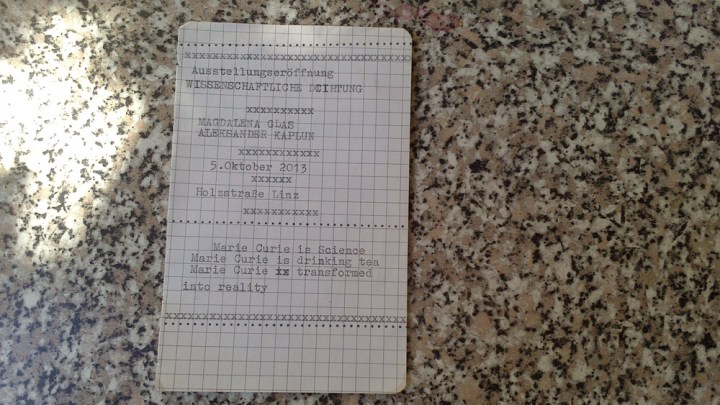 xxxxxxxxxxxxxxxxxxxxxxxxxxxxxxxxxxxx
Ausstellungseröffnung
WISSENSCHAFTLICHE DCIHTUNG
xxxxxxxxxx
MAGDALENA GLAS
ALEKSANDER KAPLUN
xxxxxxxxxxxx
5.Oktober 2013
xxxxxx
Holzstraße Linz
xxxxxxxxxxx
Marie Curie is Science
Marie Curie is drinking tea
Marie Curie xx transformed
into reality
xxxxxxxxxxxxxxxxxxxxxxxxxxxxxxxxxxx